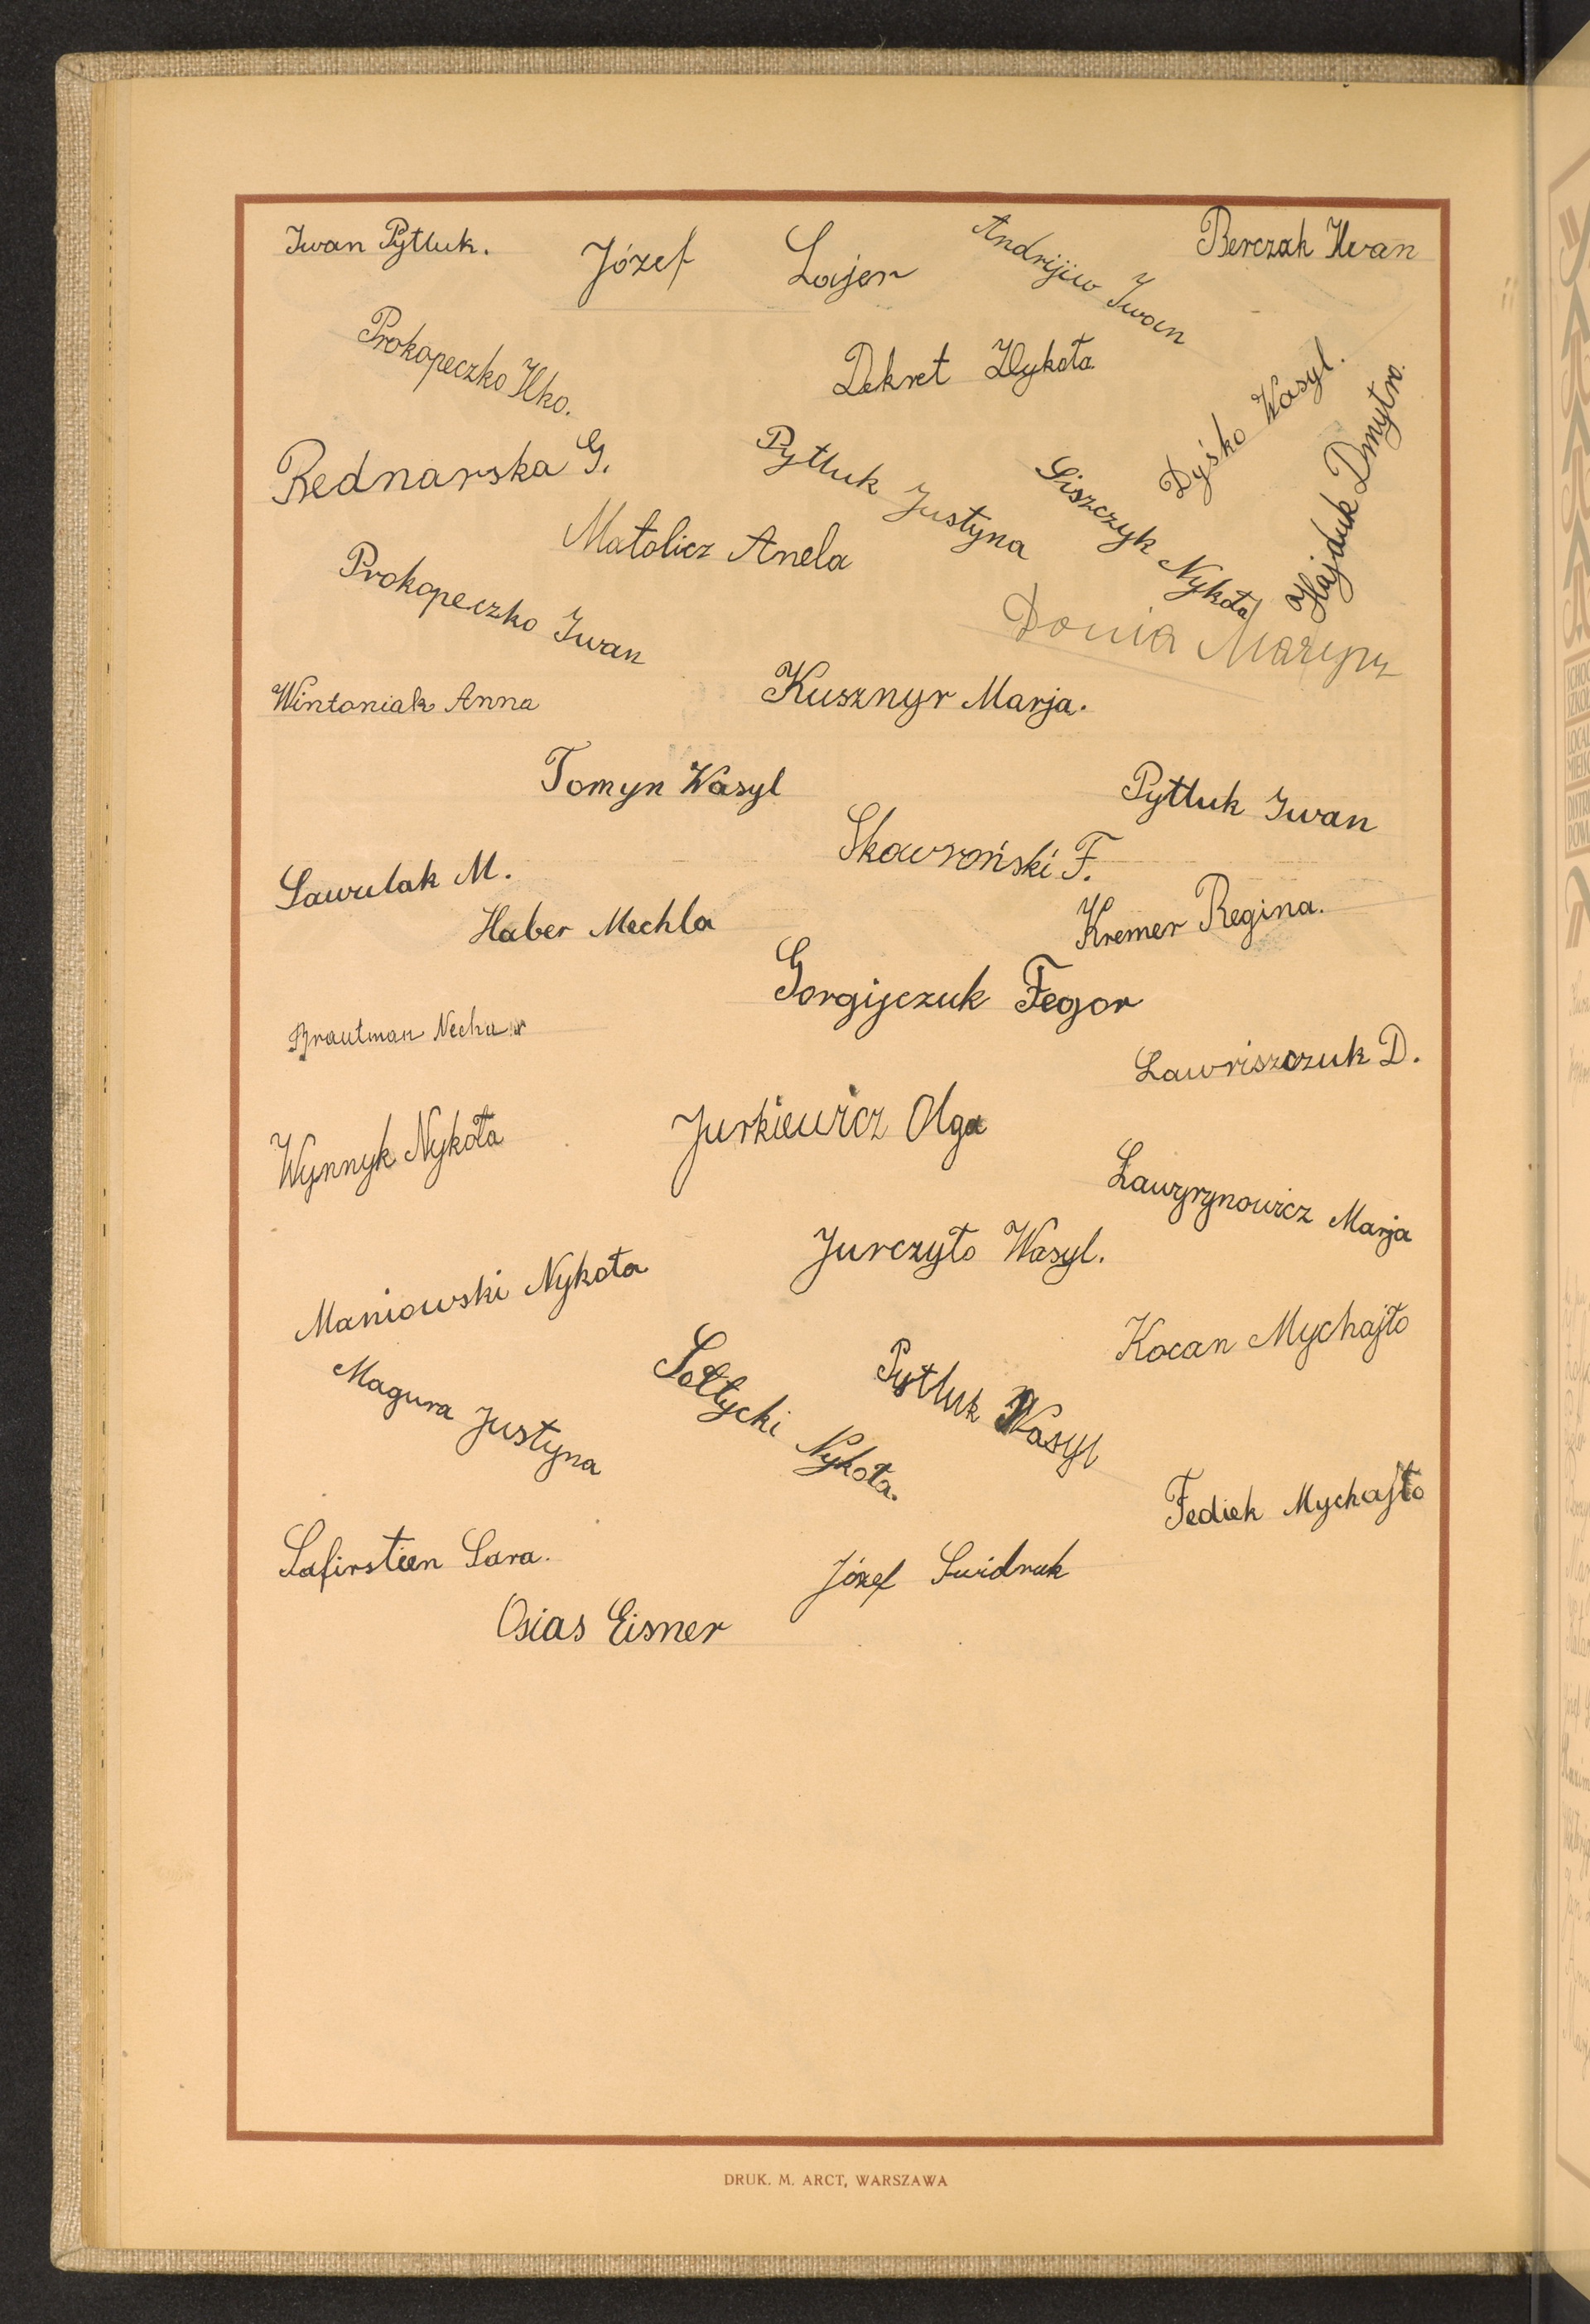 Iwan Pytluk.
Józef Lajer
Andrijiw Iwan
Berczak Iwan
Prokopeczko Ilko.
Dekret Nykoła
Dyśko Wasyl.
Hajduk Dmytro.
Bednarska G.
Pytluk Justyna
Siszczyk Nykoła
Matolicz Anela
Prokopeczko Iwan
Donia
Wintoniak Anna
Kusznyr Marja.
Tomyn Wasyl
Pytluk Iwan
Skowroński F.
Sawulak M.
Haber Mechla
Kremer Regina.
Gorgijczuk Fegor
Brautman Necha
Lawriszczuk D.
Wynnyk Nykoła
Jurkiewicz Olga
Ławyrynowicz Marja
Jurczyło Wasyl.
Maniowski Nykoła
Kocan Mychajło
Magura Justyna
Sołtycki Nykoła.
Pytluk Wasyl
Fediek Mychajło
Safirstien Sara.
Józef Swidruk
Osias Eisner
DRUK. M. ARCT, WARSZAWA